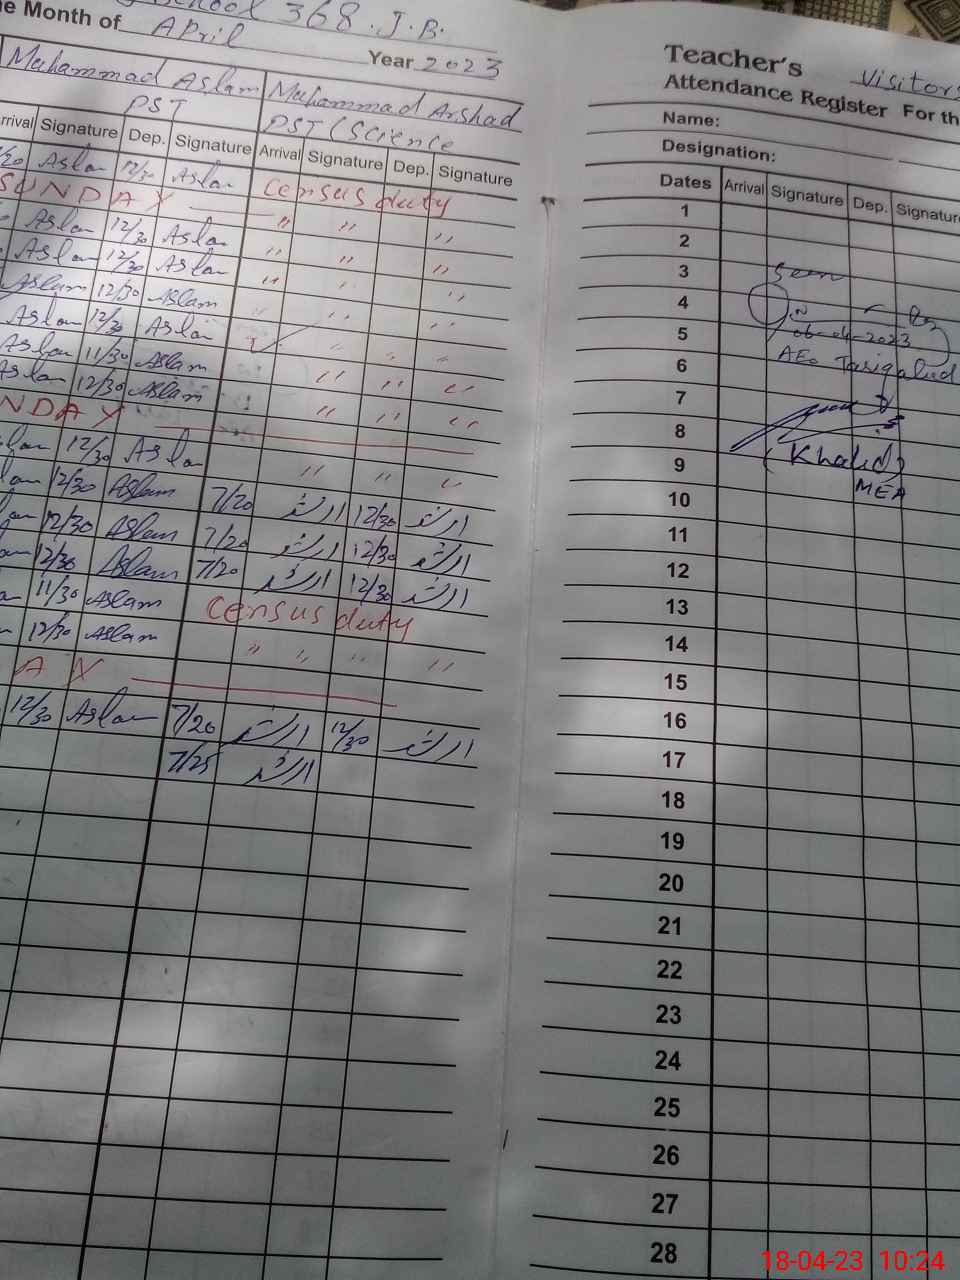 School 368.J.B.
e Month of April Year 2023
Muhammad Aslam Muhammad Arshad
PST PST (Science
rrival Signature Dep. Signature Arrival Signature Dep. Signature
/20 Aslam 12/30 Aslam Census duty
SUNDAY 〃 〃 〃
Aslam 12/30 Aslam 〃 〃 〃
Aslam 12/30 Aslam 〃 〃 〃
Aslam 12/30 Aslam 〃 〃 〃
Aslam 12/30 Aslam 〃 〃 〃
Aslam 11/30 Aslam 〃 〃 〃
Aslam 12/30 Aslam 〃 〃 〃
NDAY
lam 12/30 Aslam 〃 〃 〃
lam 12/30 Aslam 7/20 ارشد 12/30 ارشد
lam 12/30 Aslam 7/20 ارشد 12/30 ارشد
am 12/30 Aslam 7/20 ارشد 12/30 ارشد
11/30 Aslam Census duty
12/30 Aslam 〃 〃 〃 〃
AY
12/30 Aslam 7/20 ارشد 12/30 ارشد
7/25 ارشد
Teacher's Visitors
Attendance Register For th
Name:
Designation:
Dates Arrival Signature Dep. Signature
1
2
3 Seen
4
5 06-04-2023
6 AEO
7
8
9 (Khalid)
10 MEA
11
12
13
14
15
16
17
18
19
20
21
22
23
24
25
26
27
28
18-04-23 10:24